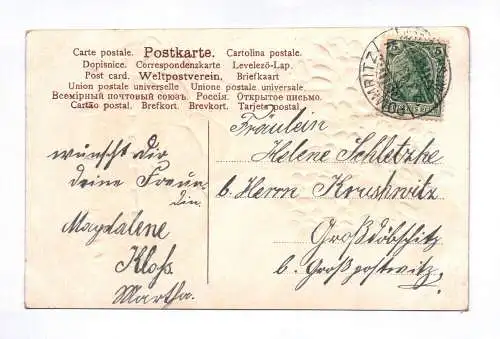 Carte postale. Postkarte. Cartolina postale.
Dopisnice. Correspondenzkarte Levelező-Lap.
Post card. Weltpostverein. Briefkaart
Union postale universelle Unione postale universale.
Всемірный почтовый союзъ. Россія. Открытое письмо.
Cartão postal. Brefkort. Brevkort. Tarjeta postal.
5 5
MARITZ
wünscht dir
deine Freun-
din.
Magdalene
Kloß.
Martha.
Fräulein
Helene Schletzke
b. Herrn Kruschwitz
Großdöbschitz
b. Großpostwitz.